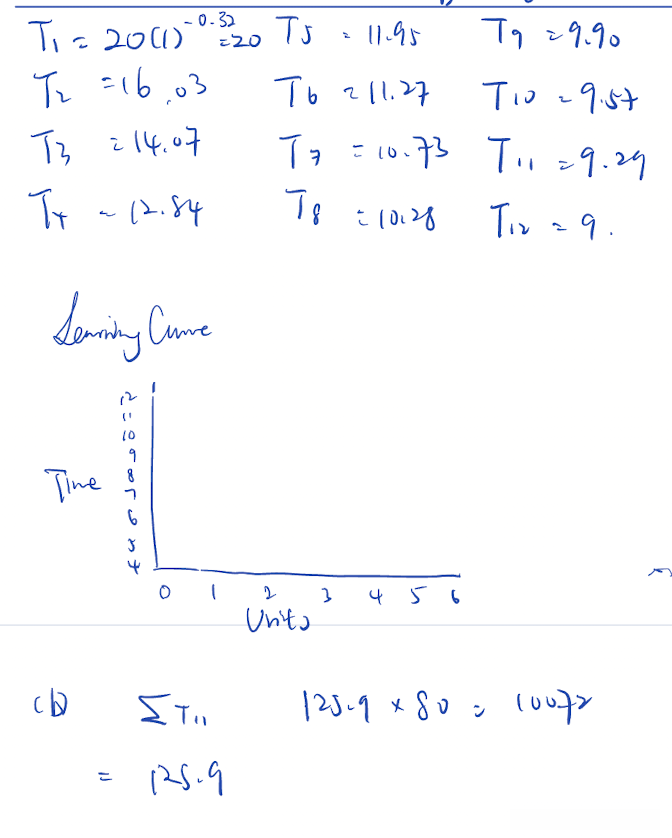 T1 = 20(1)^-0.32 = 20 T5 = 11.95 T9 = 9.90
T2 = 16.03 T6 = 11.27 T10 = 9.57
T3 = 14.07 T7 = 10.73 T11 = 9.29
T4 = 12.84 T8 = 10.28 T12 = 9.
Learning Curve
12
11
10
9
8
Time
7
6
5
4
0 1 2 3 4 5 6
Units
(b) ΣT11 125.9 × 80 = 10072
= 125.9